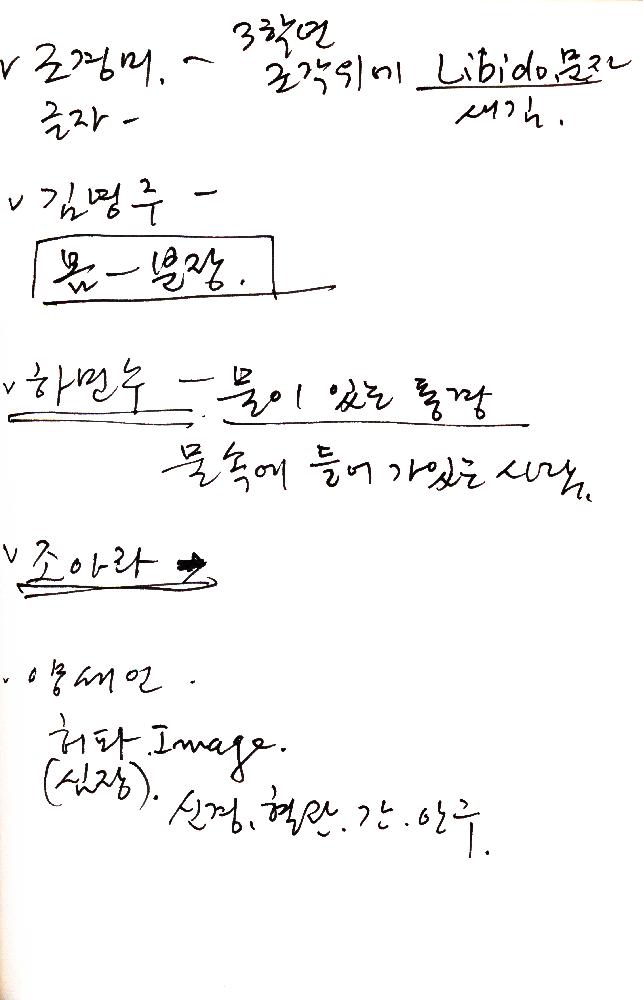 v 조경미. ~ 3학년
조각위에 Libido.문자
글자 - 새김.
v 김명주 -
몸 - 분장.
v 하민수 - 물이 있는 통깡
물속에 들어가있는 사람.
v 조아라 →
. 양세언 .
허파. Image.
(심장).
신경. 혈관. 간. 안구.